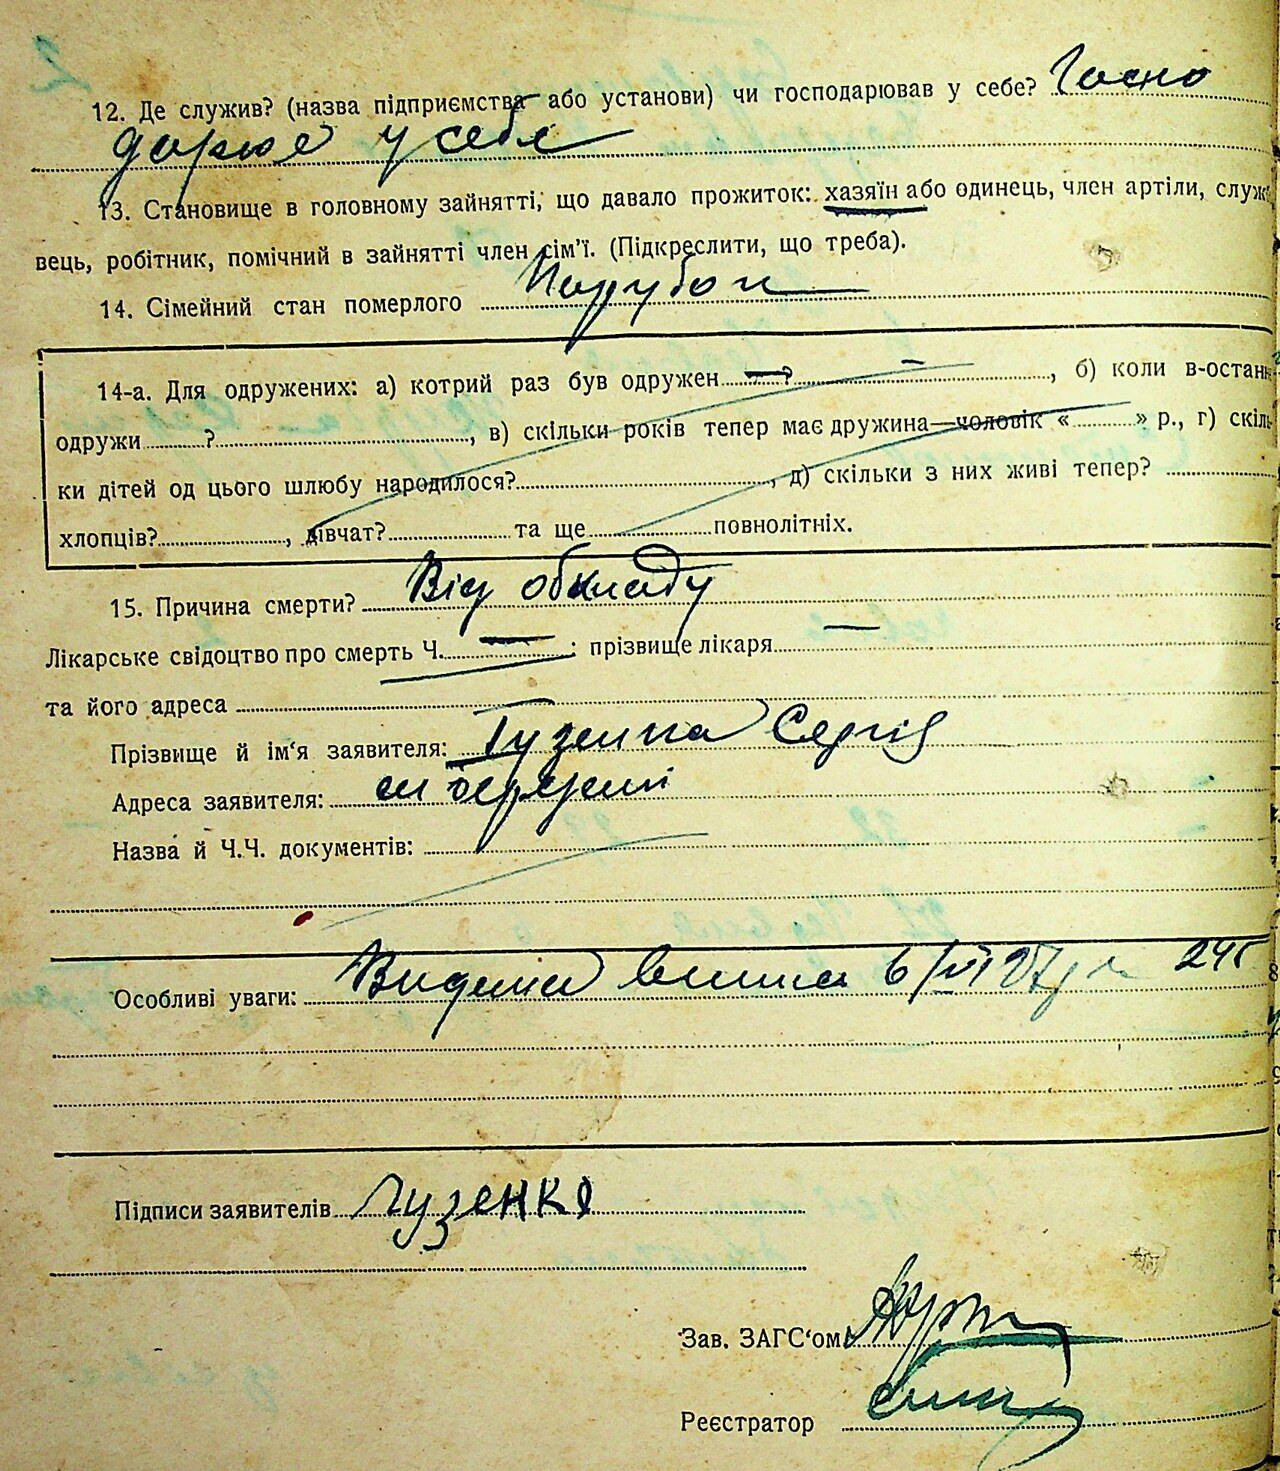 12. Де служив? (назва підприємства або установи) чи господарював у себе? Госпо
дорює у себе
13. Становище в головному зайнятті, що давало прожиток: хазяїн або одинець, член артіли, служ
вець, робітник, помічний в зайнятті член сім'ї. (Підкреслити, що треба).
14. Сімейний стан померлого Парубок
14-а. Для одружених: а) котрий раз був одружен ? , б) коли в-остан
одружи ? , в) скільки років тепер має дружина—чоловік « » р., г) скіль
ки дітей од цього шлюбу народилося? , д) скільки з них живі тепер?
хлопців? , дівчат? та ще повнолітніх.
15. Причина смерти? Від обкладу
Лікарське свідоцтво про смерть Ч. — : прізвище лікаря —
та його адреса
Прізвище й ім'я заявителя: Гузенко Сергій
Адреса заявителя:
Назва й Ч.Ч. документів:
Особливі уваги: Видана виписка 6/VI 27р
Підписи заявителів Гузенко
Зав. ЗАГС'ом
Реєстратор